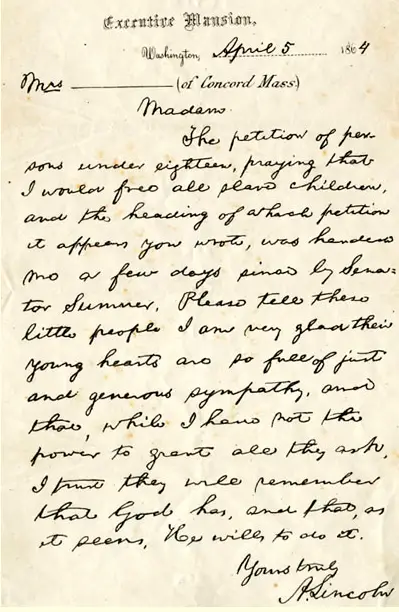 Executive Mansion,
Washington, April 5 1864
Mrs (of Concord Mass)
Madam.
The petition of per-
sons under eighteen, praying that
I would free all slave children,
and the heading of which petition
it appears you wrote, was handed
me a few days since by Sena-
tor Sumner. Please tell these
little people I am very glad their
young hearts are so full of just
and generous sympathy, and
that, while I have not the
power to grant all they ask,
I trust they will remember
that God has, and that, as
it seems, He wills to do it.
Yours truly
A. Lincoln